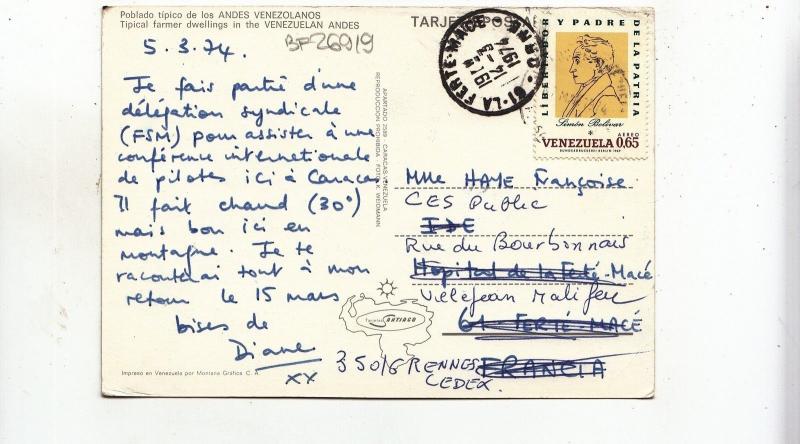 Poblado típico de los ANDES VENEZOLANOS
Tipical farmer dwellings in the VENEZUELAN ANDES
TARJETA POSTAL
BF26919
5.3.74.
Je fais partie d'une
délégation syndicale
(FSM) pour assister à une
conférence internationale
de pilotes ici à Caracas.
Il fait chaud (30°)
mais bon ici en
montagne. Je te
raconterai tout à mon
retour le 15 mars
bises de
Diane
xx
Impreso en Venezuela por Montana Gráfica C. A.
APARTADO 2589 CARACAS VENEZUELA
REPRODUCCION PROHIBIDA FOTO K. WEIDMANN
Tarjetas SANTIAGO
61-LA FERTE-MACE
ORNE
19H
14-3
1974
LIBERTADOR Y PADRE DE LA PATRIA
Simón Bolívar
AEREO
VENEZUELA 0,65
BUNDESDRUCKEREI BERLIN
Mlle HAYE Françoise
CES Public
IDE
Rue du Bourbonnais
Hopital de la Ferté-Macé
Villejean Malifeu
61 FERTÉ-MACÉ
35016 RENNES
CEDEX.
FRANCIA